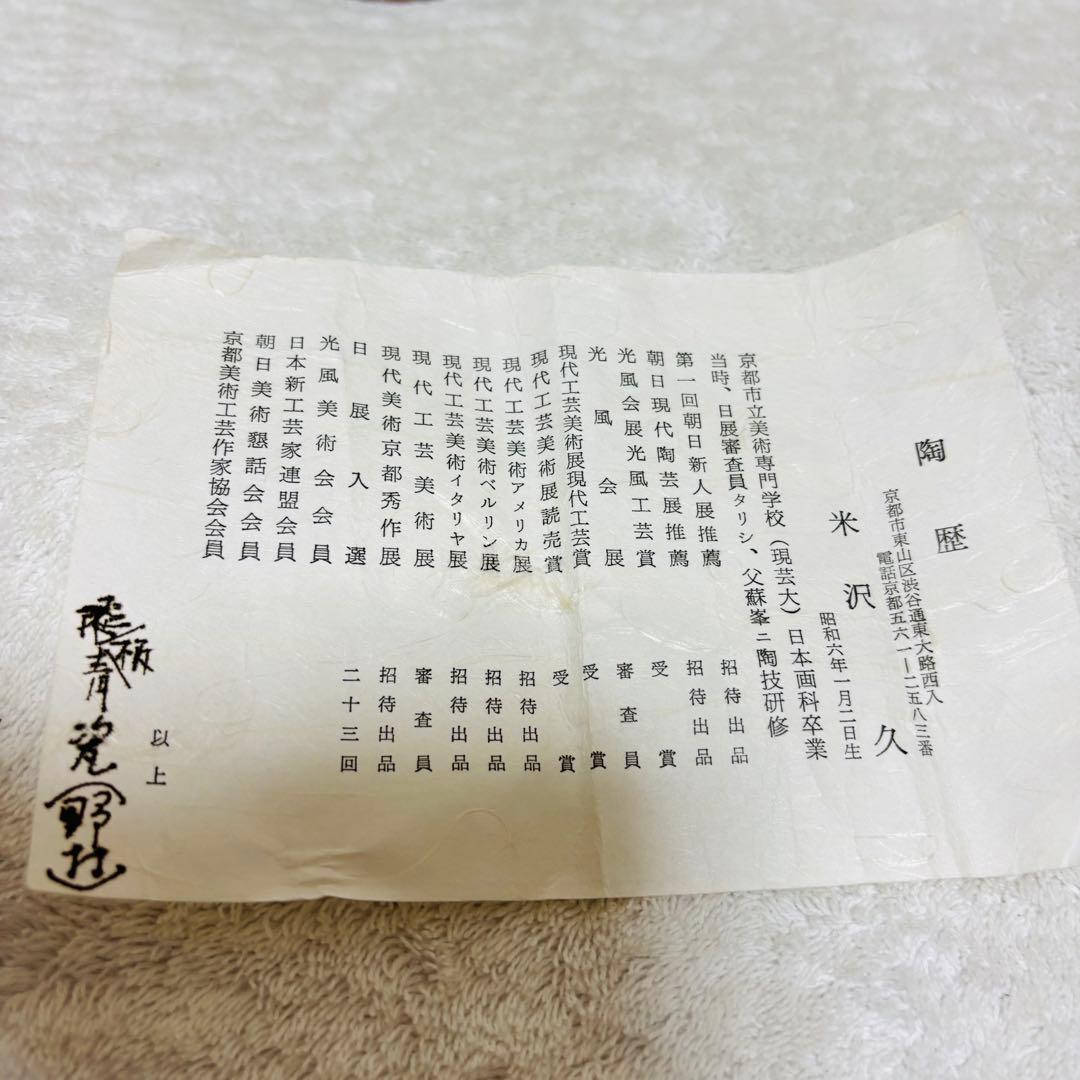 陶歴
京都市東山区渋谷通東大路西入
電話京都五六一ー二五八三番
米沢久
昭和六年一月二日生
京都市立美術専門学校(現芸大)日本画科卒業
当時、日展審査員タリシ、父蘇峯ニ陶技研修
第一回朝日新人展推薦 招待出品
朝日現代陶芸展推薦 招待出品
光風会展光風工芸賞 受賞
光風会展 審査員
現代工芸美術展現代工芸賞 受賞
現代工芸美術展読売賞 受賞
現代工芸美術アメリカ展 招待出品
現代工芸美術ベルリン展 招待出品
現代工芸美術イタリヤ展 招待出品
現代工芸美術展 審査員
現代美術京都秀作展 招待出品
日展入選 二十三回
光風美術会会員
日本新工芸家連盟会員
朝日美術懇話会会員
京都美術工芸作家協会会員
以上
青瓷